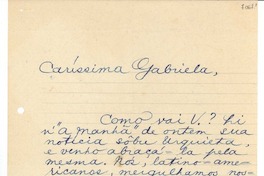 Caríssima Gabriela,
Como vai V.? Li
n'"A Manhã" de ontem sua
notícia sôbre Urquieta,
e venho abraçá-la pela
mesma. Nós, latino-ame-
ricanos, mergulhamos nos-